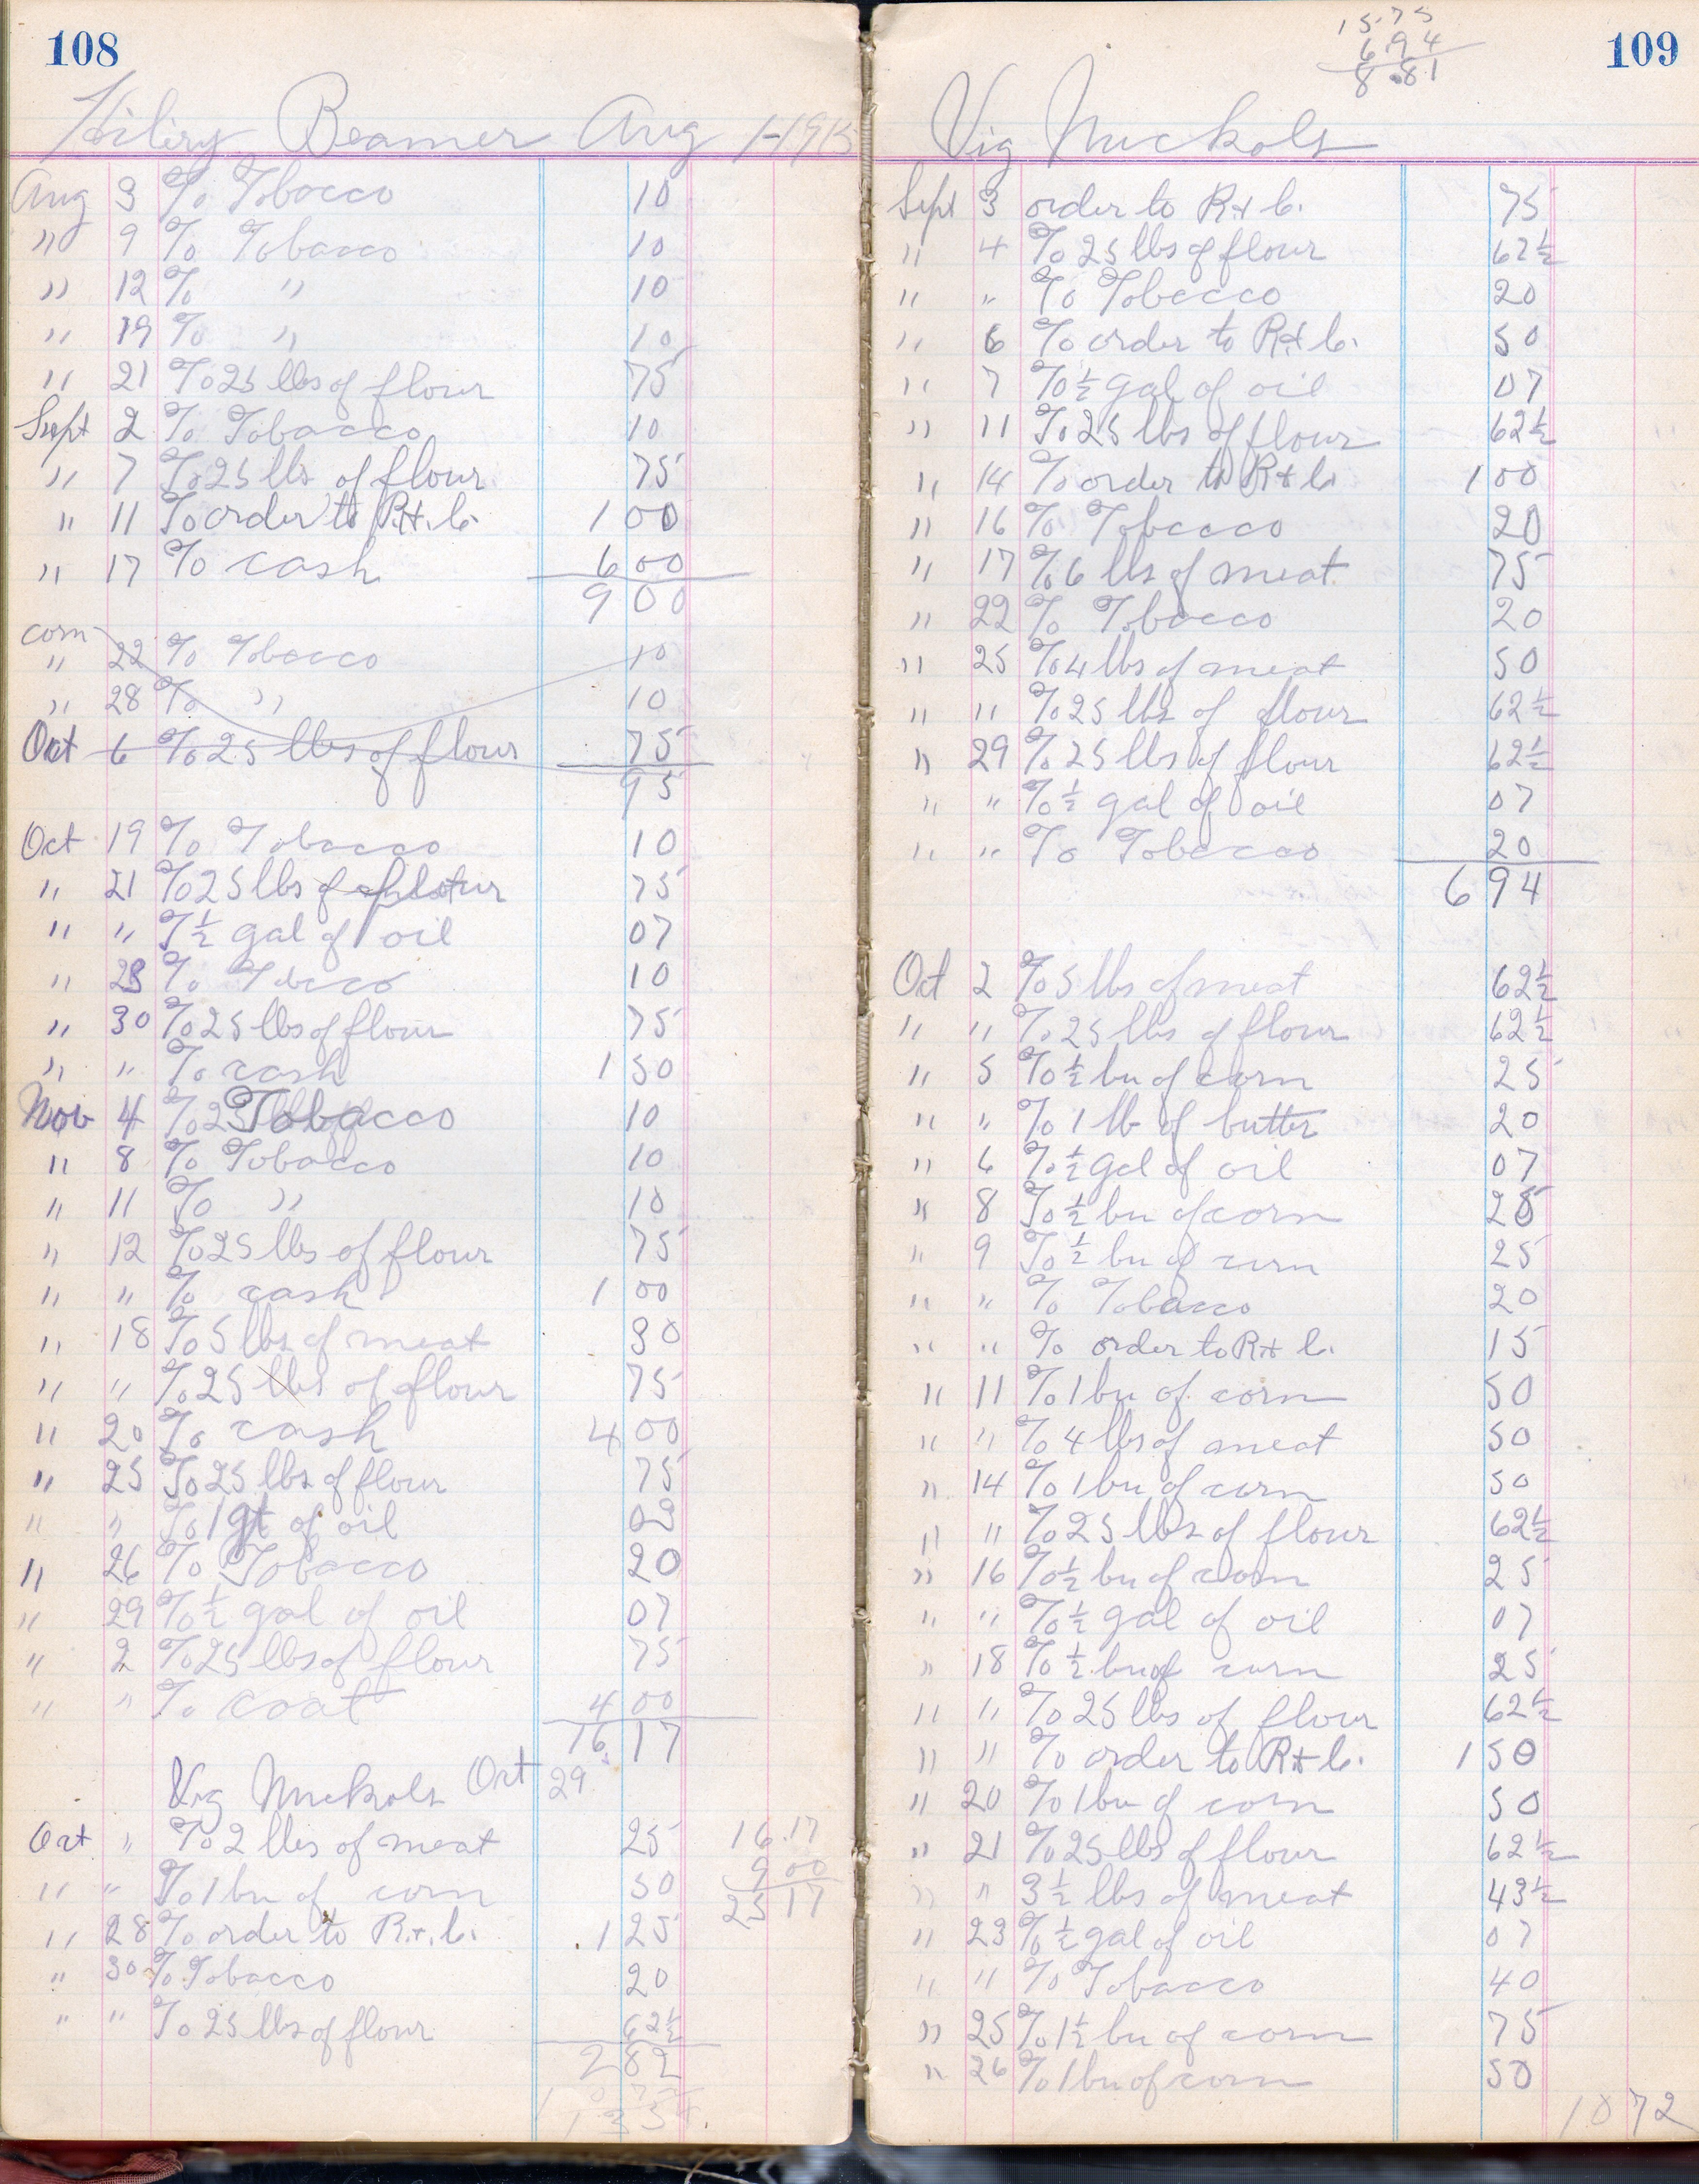 108
Hiliry Beamer Aug 1-1915
Aug 3 To Tobacco 10
" 9 To Tobacco 10
" 12 To " 10
" 19 To " 10
" 21 To 25 lbs of flour 75
Sept 2 To Tobacco 10
" 7 To 25 lbs of flour 75
" 11 To order to R.+.C. 1 00
" 17 To cash 6 00
9 00
corn
" 22 To Tobacco 10
" 28 To " 10
Oct 6 To 25 lbs of flour 75
95
Oct 19 To Tobacco 10
" 21 To 25 lbs of flour 75
" " T ½ gal of oil 07
" 28 To Tobcco 10
" 30 To 25 lbs of flour 75
" " To cash 1 50
Nov 4 To Tobacco 10
" 8 To Tobacco 10
" 11 To " 10
" 12 To 25 lbs of flour 75
" " To cash 1 00
" 18 To 5 lbs of meat 30
" " To 25 lbs of flour 75
" 20 To cash 4 00
" 25 To 25 lbs of flour 75
" " To 1 qt of oil 03
" 26 To Tobacco 20
" 29 To ½ gal of oil 07
" 2 To 25 lbs of flour 75
" " To coat 4 00
16 17
Vig Nuckols Oct 29
Oct " To 2 lbs of meat 25
" " To 1 bu of corn 50
" 28 To order to R.+.C. 1 25
" 30 To Tobacco 20
" " To 25 lbs of flour 62½
2 82
16.17
9 00
25 17
109
15.75
6 94
8.81
Vig Nuckols
Sept 3 order to R+C. 75
" 4 To 25 lbs of flour 62½
" " To Tobacco 20
" 6 To order to R+C. 50
" 7 To ½ gal of oil 07
" 11 To 25 lbs of flour 62½
" 14 To order to R+C 1 00
" 16 To Tobacco 20
" 17 To 6 lbs of meat 75
" 22 To Tobacco 20
" 25 To 4 lbs of meat 50
" " To 25 lbs of flour 62½
" 29 To 25 lbs of flour 62½
" " To ½ gal of oil 07
" " To Tobacco 20
6 94
Oct 2 To 5 lbs of meat 62½
" " To 25 lbs of flour 62½
" 5 To ½ bu of corn 25
" " To 1 lb of butter 20
" 6 To ½ gal of oil 07
" 8 To ½ bu of corn 25
" 9 To ½ bu of corn 25
" " To Tobacco 20
" " To order to R+C. 15
" 11 To 1 bu of corn 50
" " To 4 lbs of meat 50
" 14 To 1 bu of corn 50
" " To 25 lbs of flour 62½
" 16 To ½ bu of corn 25
" " To ½ gal of oil 07
" 18 To ½ bu of corn 25
" " To 25 lbs of flour 62½
" " To order to R+C. 1 50
" 20 To 1 bu of corn 50
" 21 To 25 lbs of flour 62½
" " 3½ lbs of meat 43½
" 23 To ½ gal of oil 07
" " To Tobacco 40
" 25 To 1½ bu of corn 75
" 26 To 1 bu of corn 50
10 72